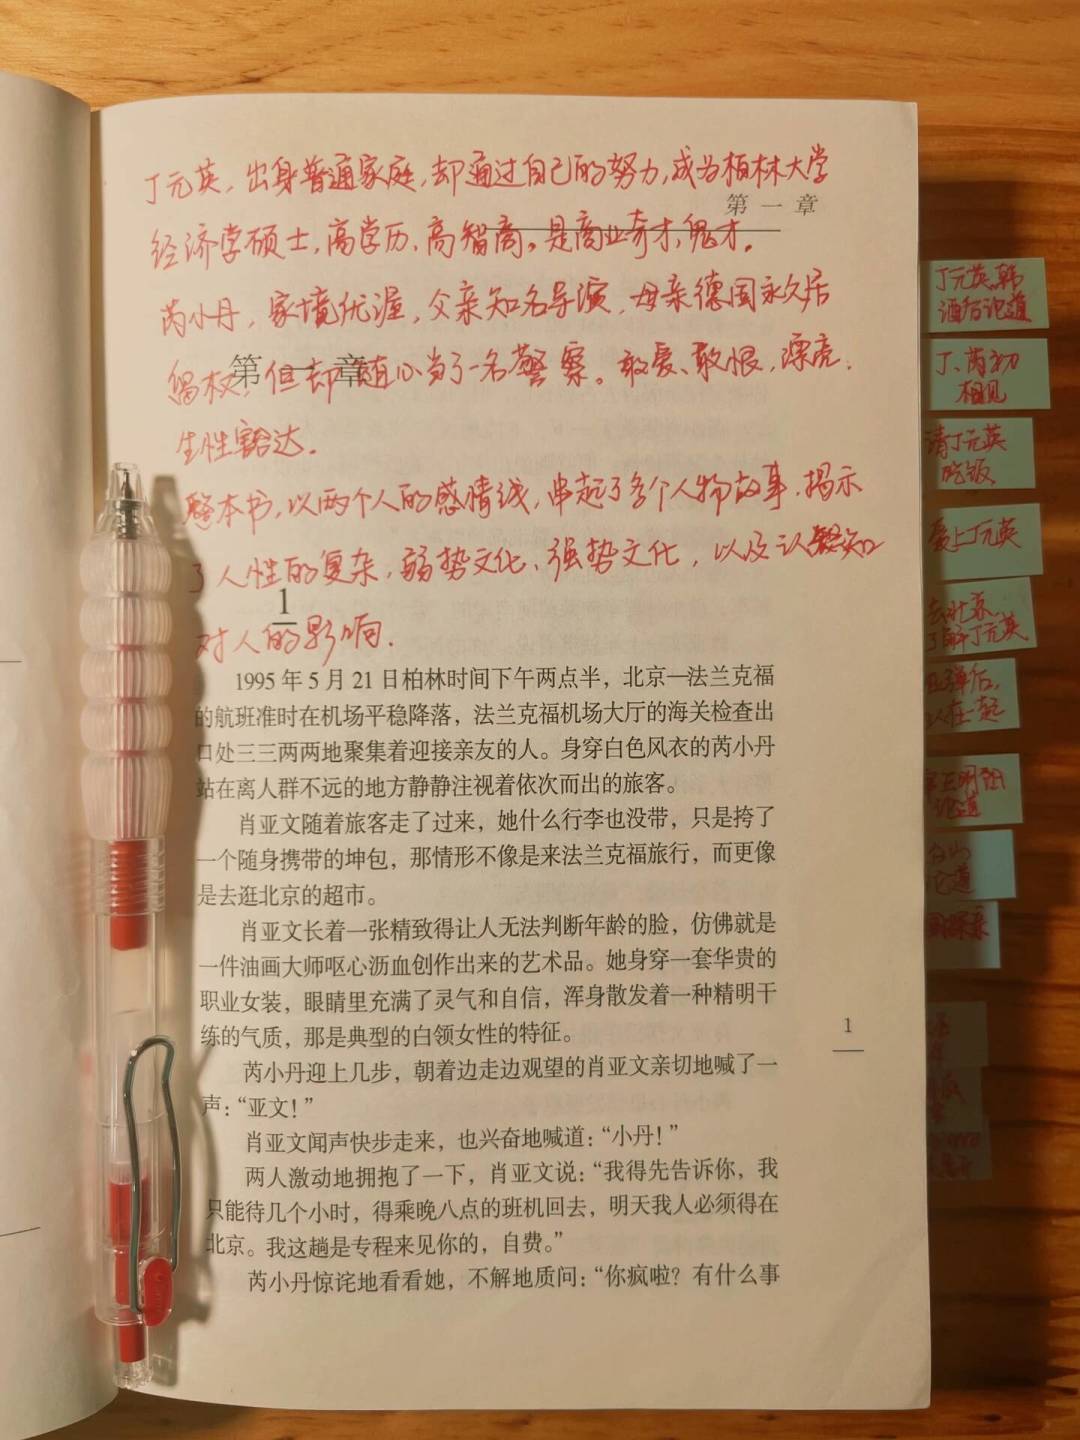 丁元英，出身普通家庭，却通过自己的努力，成为柏林大学
第一章
经济学硕士，高学历，高智商。是商业奇才，鬼才。
芮小丹，家境优渥，父亲知名导演，母亲德国永久居
第一章
留权，但却随心当了一名警察。敢爱、敢恨，漂亮.
生性豁达.
整本书，以两个人的感情线，串起了各个人物故事.揭示
了人性的复杂，弱势文化、强势文化，以及认知
1
对人的影响.
1995年5月21日柏林时间下午两点半，北京—法兰克福
的航班准时在机场平稳降落，法兰克福机场大厅的海关检查出
口处三三两两地聚集着迎接亲友的人。身穿白色风衣的芮小丹
站在离人群不远的地方静静注视着依次而出的旅客。
肖亚文随着旅客走了过来，她什么行李也没带，只是挎了
一个随身携带的坤包，那情形不像是来法兰克福旅行，而更像
是去逛北京的超市。
肖亚文长着一张精致得让人无法判断年龄的脸，仿佛就是
一件油画大师呕心沥血创作出来的艺术品。她身穿一套华贵的
职业女装，眼睛里充满了灵气和自信，浑身散发着一种精明干
练的气质，那是典型的白领女性的特征。
芮小丹迎上几步，朝着边走边观望的肖亚文亲切地喊了一
声：“亚文！”
肖亚文闻声快步走来，也兴奋地喊道：“小丹！”
两人激动地拥抱了一下，肖亚文说：“我得先告诉你，我
只能待几个小时，得乘晚八点的班机回去，明天我人必须得在
北京。我这趟是专程来见你的，自费。”
芮小丹惊诧地看看她，不解地质问：“你疯啦？有什么事
1
丁元英、韩
酒后论道
丁、芮初
相见
请丁元英
吃饭
爱上丁元英
去北京
了解丁元英
弹后，
人在一起
论道
论道
探亲